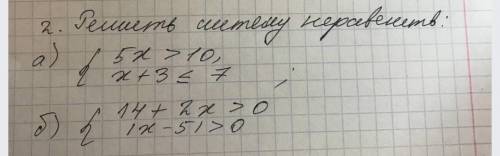 2. Решить систему неравенств:
а) { 5x > 10,
x + 3 ≤ 7 ;
б) { 14 + 2x > 0
|x - 5| > 0